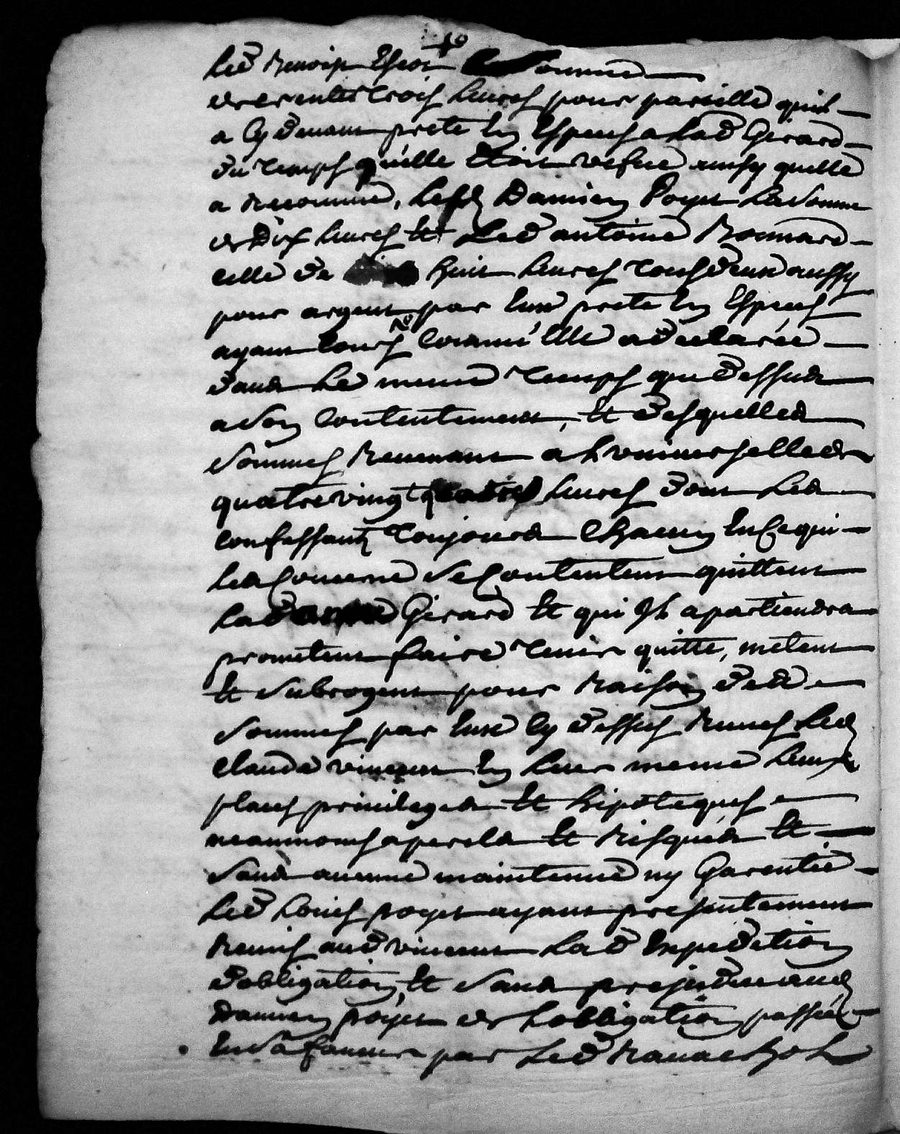 Led. Benoist
de trente trois livres pour pareille quil
a cy devant preté en Especes a lad. Girard
du temps quelle Etoit vefue ainsy quelle
a reconnu, led. Damien Poyet la somme
de Dix livres Et Led. antoine Bonnard
celle de huit livres tous deux aussy
pour argent par Eux preté En Especes
ayant tout comme Elle a declaréé
dans le meme temps que dessus
a son Contentement, Et desquelles
sommes revenant a luniverselle de
quatre vingt quatre livres dont les
confessants toujours Chacun En Ce qui
les Concerne se Contentent quittent
lad. Girard Et qui Il apartiendra
prometent faire tenir quitte, metent
Et subrogent pour raison desd.
sommes par Eux cy dessus receues led.
Claude vincent En leur meme lieux
places privileges Et hipoteques
neaumoins a perils Et risques Et
sans aucune maintenue ny Garentie
Led. Louis poyet ayant presentement
remis aud. vincent lad. Expedition
dobligation, Et sans prejudice aud.
Damien poyet de lobligation passéé
En sa faveur par Led. Ravachol